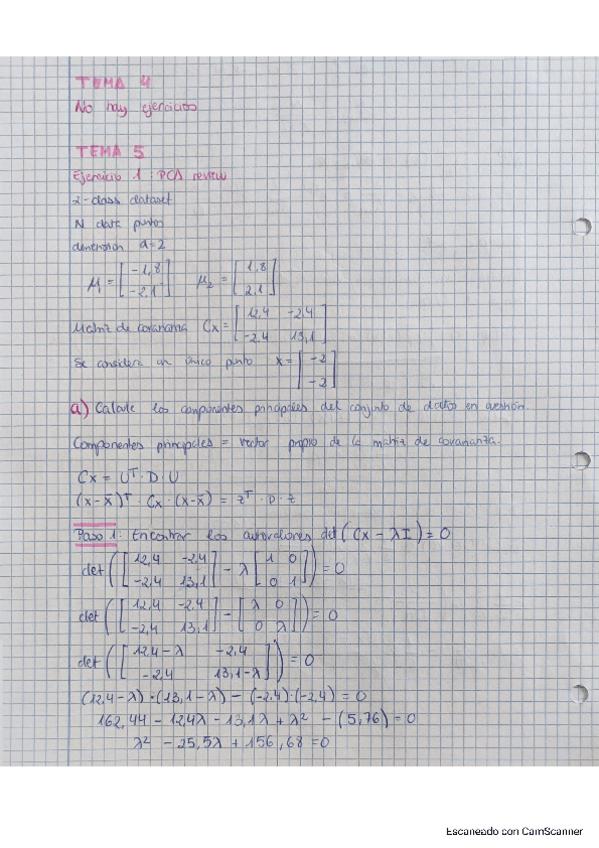 TEMA 4
No hay ejercicios
TEMA 5
Ejercicio 1: PCA review
2-class dataset
N data puntos
dimension d=2
μ₁ = [-1,8; -2,1] μ₂ = [1,8; 2,1]
Matriz de covarianza Cx = [12,4 -2,4; -2,4 13,1]
Se considera un único punto x = [-2; -2]
a) Calcule los componentes principales del conjunto de datos en cuestión.
Componentes principales = vector propio de la matriz de covarianza.
Cx = Uᵀ · D · U
(x-x̄)ᵀ · Cx · (x-x̄) = zᵀ · D · z
Paso 1: Encontrar los autovalores det(Cx - λI) = 0
det([12,4 -2,4; -2,4 13,1] - λ[1 0; 0 1]) = 0
det([12,4 -2,4; -2,4 13,1] - [λ 0; 0 λ]) = 0
det([12,4-λ -2,4; -2,4 13,1-λ]) = 0
(12,4-λ)·(13,1-λ) - (-2,4)·(-2,4) = 0
162,44 - 12,4λ - 13,1λ + λ² - (5,76) = 0
λ² - 25,5λ + 156,68 = 0
Escaneado con CamScanner